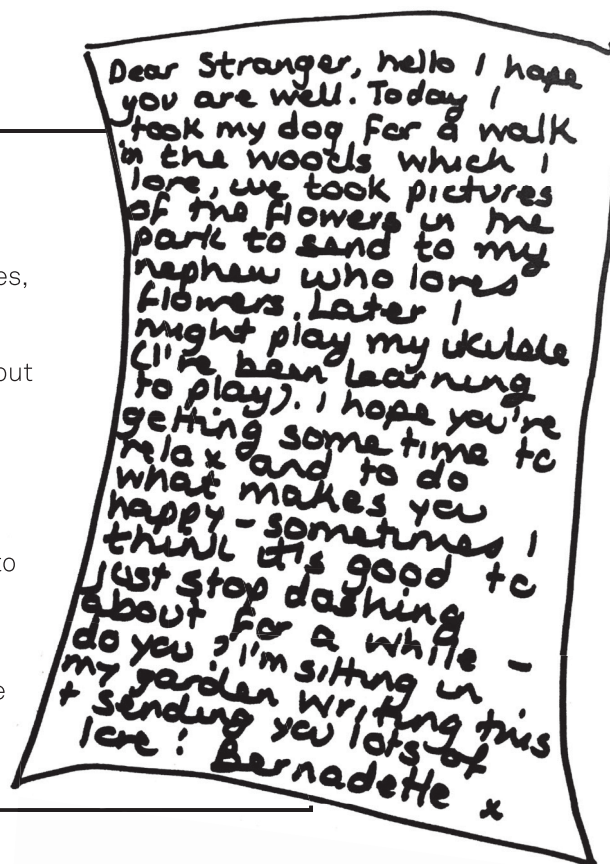 es,
out
to
e
Dear Stranger, hello I hope
you are well. Today I
took my dog for a walk
in the woods which I
love, we took pictures
of the flowers in the
park to send to my
nephew who loves
flowers. Later I
might play my ukulele
(I've been learning
to play). I hope you're
getting some time to
relax and to do
what makes you
happy - sometimes I
think it's good to
just stop dashing
about for a while -
do you? I'm sitting in
my garden writing this
+ sending you lots of
love! Bernadette x